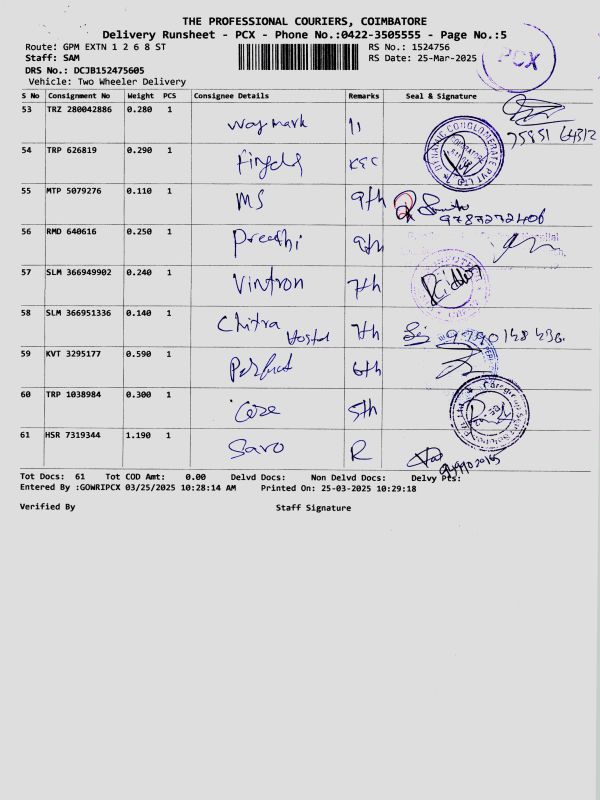 THE PROFESSIONAL COURIERS, COIMBATORE
Delivery Runsheet - PCX - Phone No.:0422-3505555 - Page No.:5
Route: GPM EXTN 1 2 6 8 ST
RS No.: 1524756
Staff: SAM
RS Date: 25-Mar-2025
PCX
DRS No.: DCJB152475605
Vehicle: Two Wheeler Delivery
S No Consignment No Weight PCS Consignee Details Remarks Seal & Signature
53 TRZ 280042886 0.280 1
Waymark 11
54 TRP 626819 0.290 1
KGC
55 MTP 5079276 0.110 1
MS 9th
9787272406
56 RMD 640616 0.250 1
Preethi 9th
57 SLM 366949902 0.240 1
Vintron 7th
58 SLM 366951336 0.140 1
Chitra Hostel 7th 9790148436
59 KVT 3295177 0.590 1
Perfect 6th
60 TRP 1038984 0.300 1
Care 5th
61 HSR 7319344 1.190 1
Saro R
Tot Docs: 61 Tot COD Amt: 0.00 Delvd Docs: Non Delvd Docs: Delvy Pts:
Entered By :GOWRIPCX 03/25/2025 10:28:14 AM Printed On: 25-03-2025 10:29:18
Verified By Staff Signature